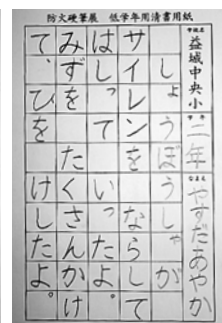 防火硬筆展 低学年用清書用紙
学校名 益城中央小 学年 二年 なまえ やすだあやか
しょうぼうしゃが
サイレンをならして
はしって いったよ。
みずを たくさんかけ
て、ひを けしたよ。